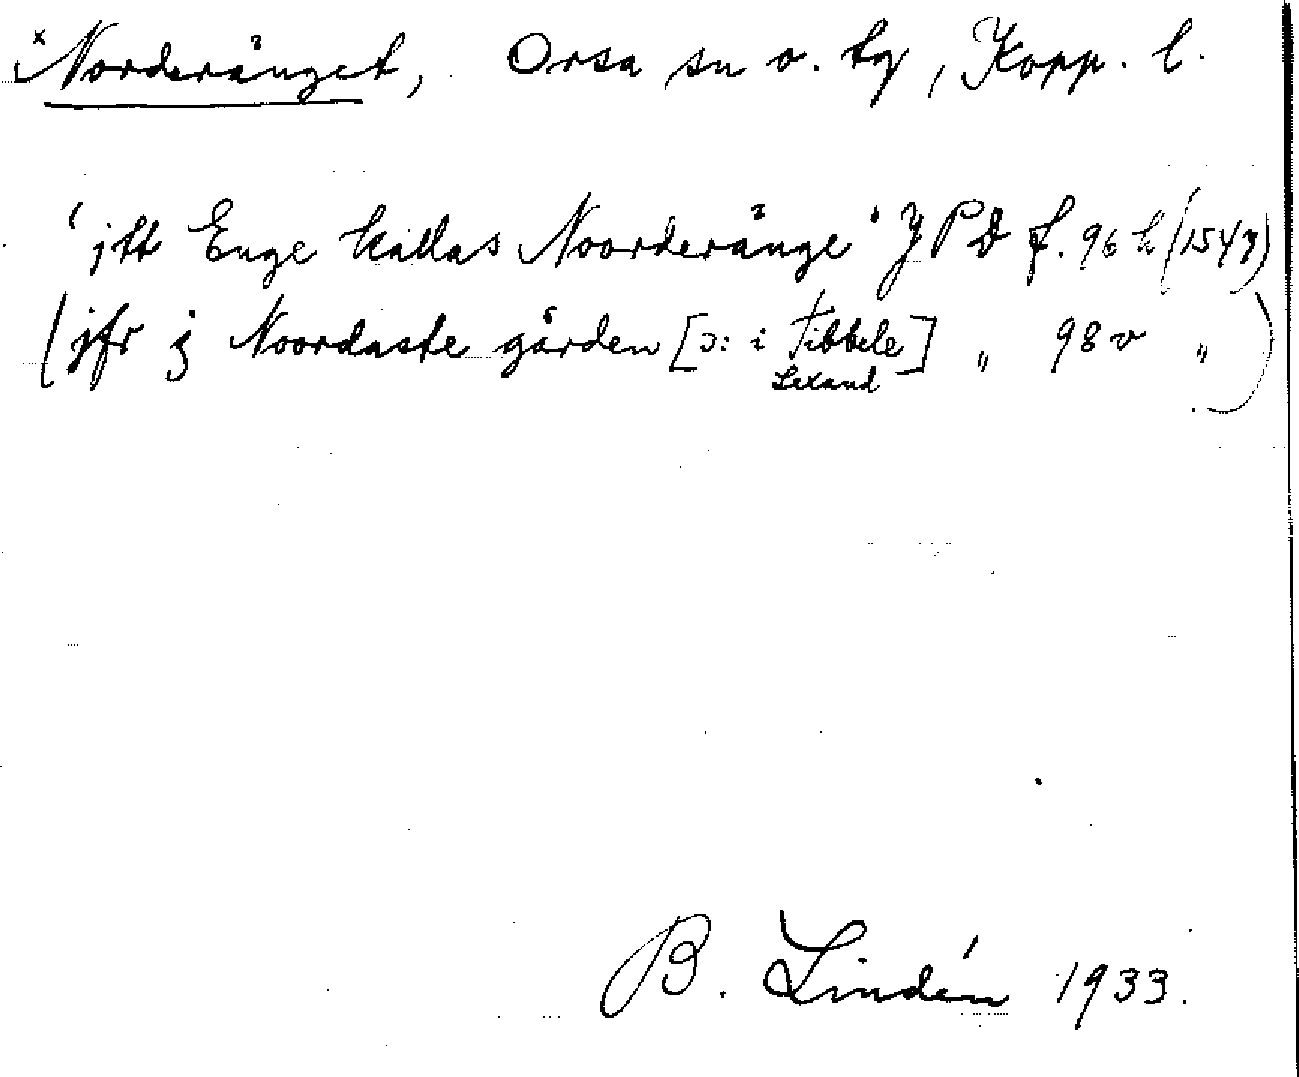 ×Norderänget, Orsa sn o. tg, Kopp. l.
'jtt Enge kallas Noorderänge' JPD f. 96 h (1543)
(jfr j Noordaste gården [ɔ: i Tibbele] „ 98 v „ )
Lexand
B. Lindén 1933.